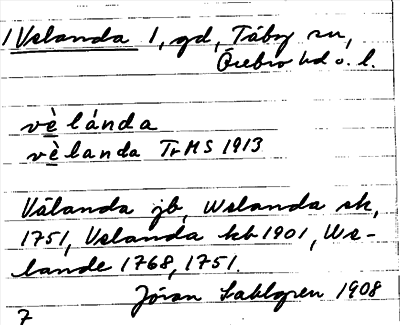 1 Velanda 1, gd, Täby sn,
Örebro hd o. l.
vè lánda
vè landa TrHS 1913
Välanda jb, Welanda sk,
1751, Velanda kb 1901, We-
lande 1768, 1751.
Jöran Sahlgren 1908
7